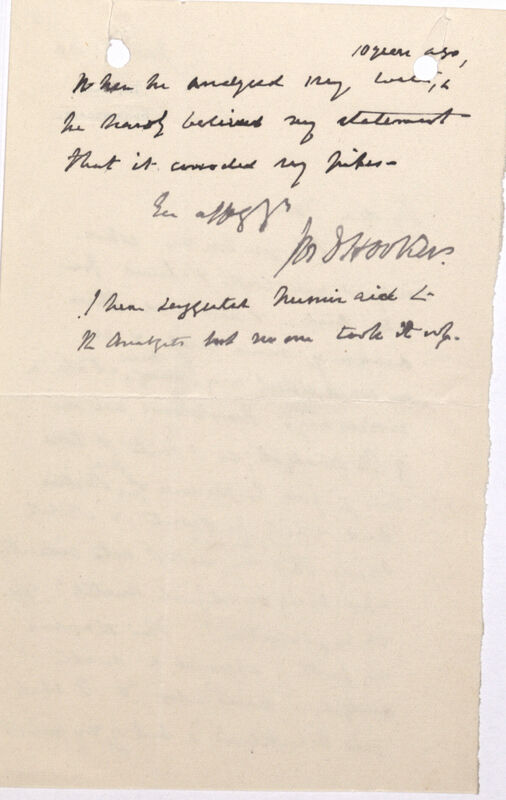 10 years ago,
when he analysed my water, &
he hardly believed my statement
that it corroded my pipes—
Ever affy yrs
Jos D Hooker.
I have suggested humic acid to
the Analysts but no one took it up.